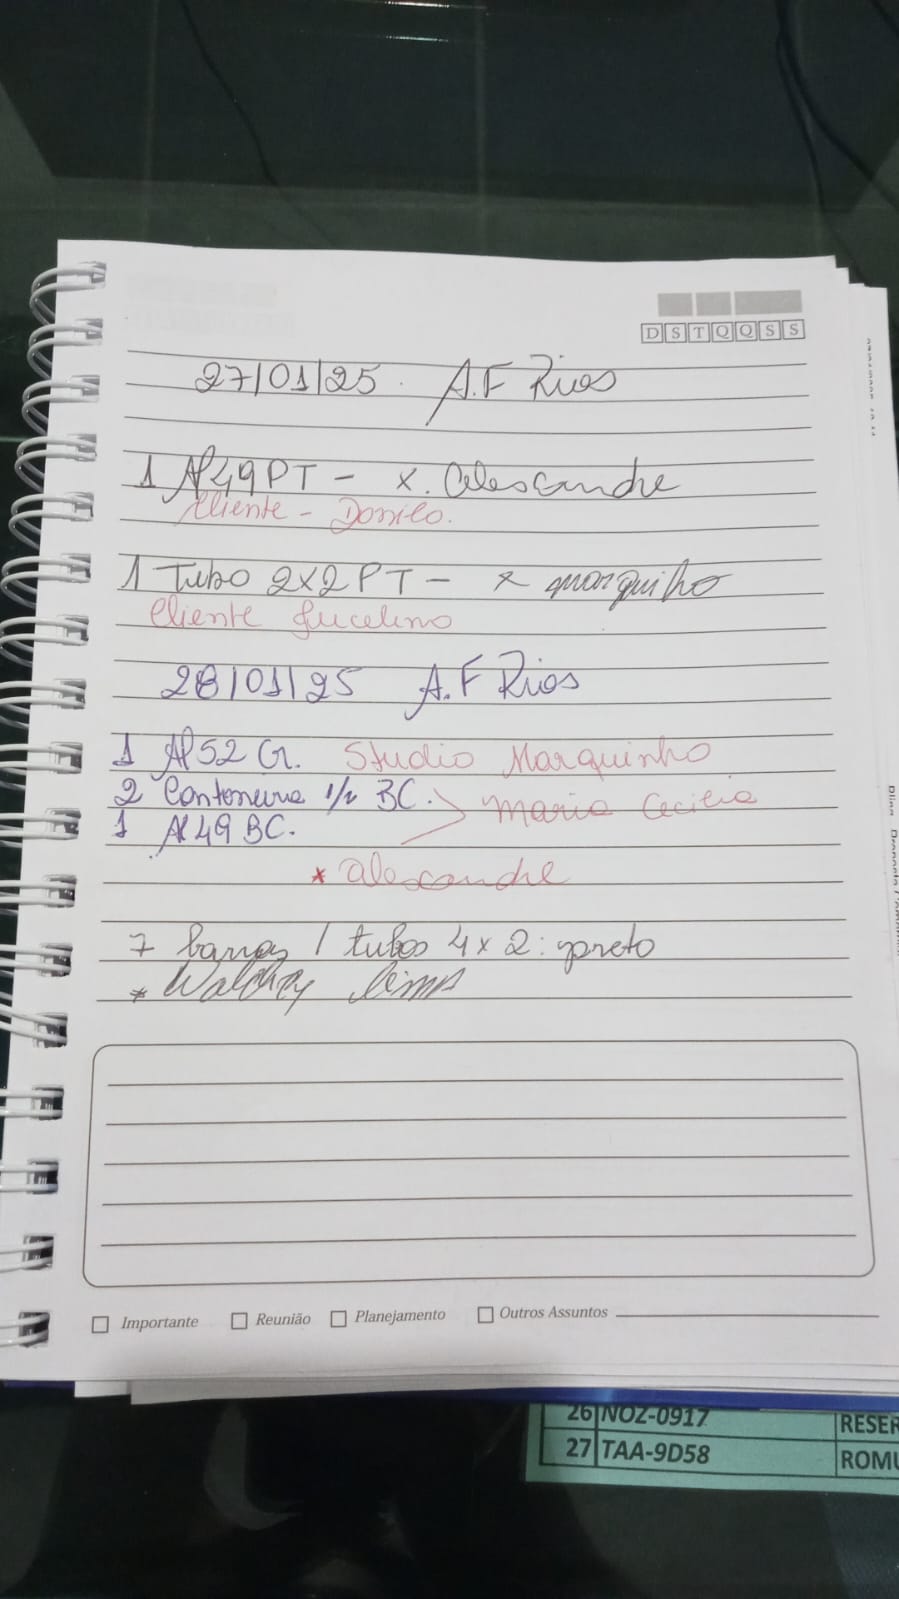 D S T Q Q S S
27/01/25. A.F Rios
1 Al 49 PT - x. Alescandre
Cliente - Danilo.
1 Tubo 2x2 PT - x marquinho
Cliente Jucelino
28/01/25 A.F Rios
1 Al 52 G. Studio Marquinho
2 Cantoneira 1/2 BC. Maria Cecilia
1 Al 49 BC.
* alescandre
7 barras / tubos 4x2: preto
* lima
Importante Reunião Planejamento Outros Assuntos
26 NOZ-0917 RESER
27 TAA-9D58 ROMU